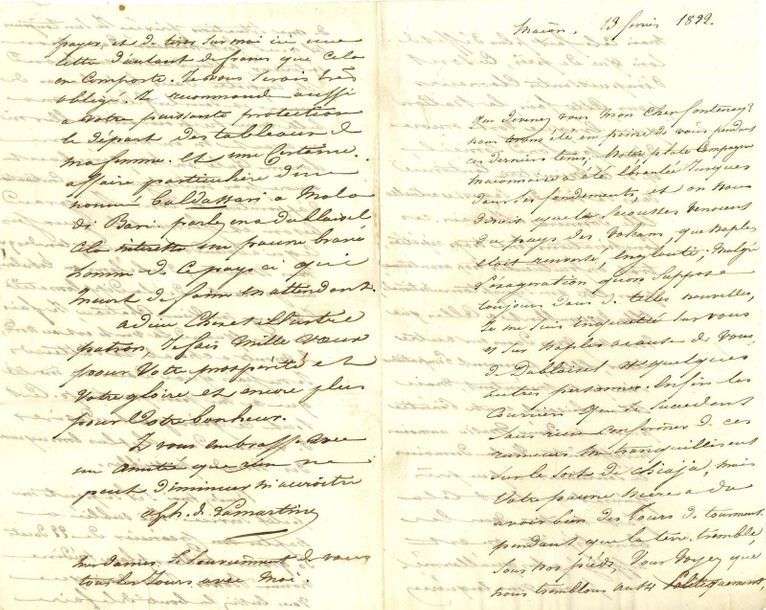 Macon, 13 fevrier 1822.
Que devenez vous mon cher fontenay?
nous avons été en peine de vous pendant
ces derniers tems. Notre petite Campagne
maconnaise a été ébranlée jusques
dans ses fondements, et on nous
disait que la secousse venait
du pays des Volcans, que Naples
etait renversé, englouti, Malgré
l'exageration qu'on suppose
toujours dans de telles nouvelles,
je me suis inquietté sur vous
et sur Naples a cause de vous
de Dablaisel et quelques
autres personnes. Enfin les
Courriers qui se succedent
sans rien confirmer de ces
rumeurs me tranquillisent
sur le sort de Chiaja, mais
Votre pauvre Mere a du
avoir bien des jours de tourment
pendant que la terre tremble
sous vos pieds. Vous voyez que
nous tremblons aussi Politiquement,
payer, et de tirer sur moi ici une
lettre d'autant de francs que cela
en Comporte. Je vous serais très
obligé. Je recommande aussi
a votre puissante protection
le départ des tableaux de
ma femme. Et une Certaine
affaire particuliere d'un
nommé Caldassari a Mola
di Bari. parlez en a dablaisel
Cela interesse un pauvre brave
homme de ce pays ci qui
meurt de faim en attendant.
adieu Cher et illustre
patron, je fais mille voeux
pour Votre prosperité et
Votre gloire et encore plus
pour Votre bonheur.
Je vous embrasse avec
une amitié que rien ne
peut diminuer ni accroitre
Alph. de Lamartine
Ces dames se souviennent de vous
tous les jours avec Moi.